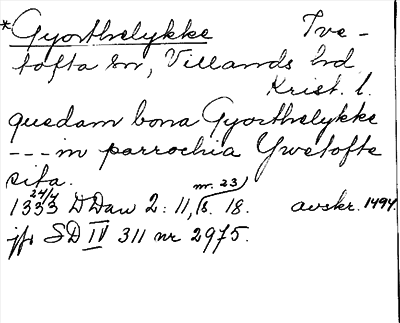 *Gyorthelykke Ive-
tofta sn, Villands hd
Krist. l.
quedam bona Gyorthelykke
--- in parrochia Ywetofte
sita.
24/4 nr. 23)
1333 DDan 2: 11, s. 18. avskr. 1494.
jfr SD IV 311 nr 2975.